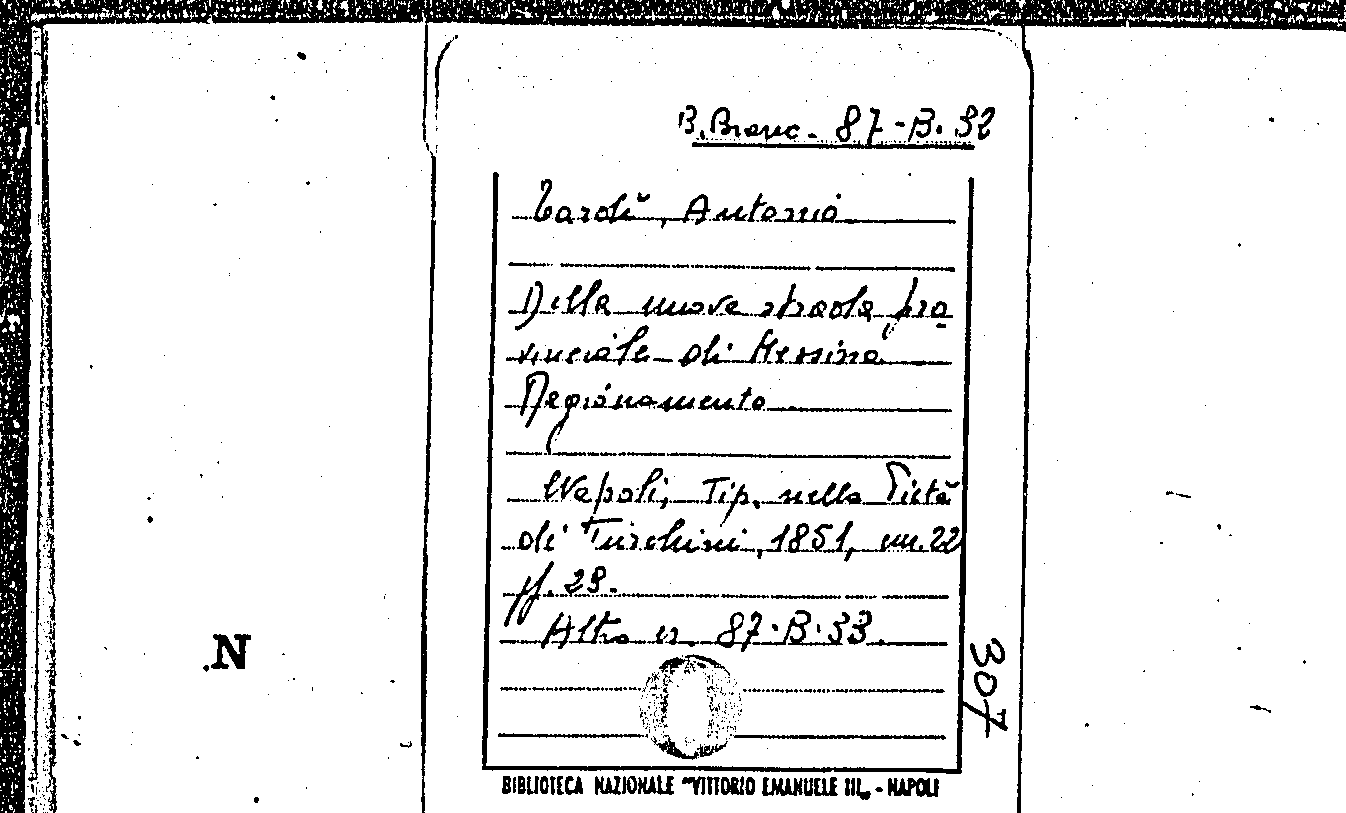 B. Branc. 87-B. 32
Tardì, Antonio
Della nuova strada pro
vinciale di Messina
Ragionamento
Napoli, Tip. nella Pietà
di Turchini, 1851, cm. 22
pp. 29.
Altro es. 87-B-33.
307
N
BIBLIOTECA NAZIONALE "VITTORIO EMANUELE III„ - NAPOLI